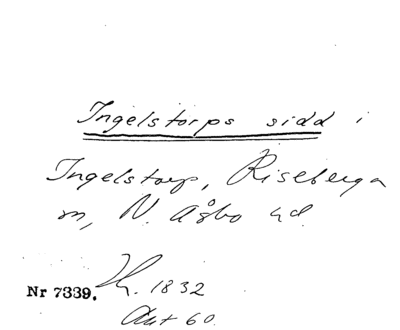 Ingelstorps sidd i
Ingelstorp, Riseberga
sn, N. Åsbo hd.
Nr 7339. Jh. 1832
Akt 60